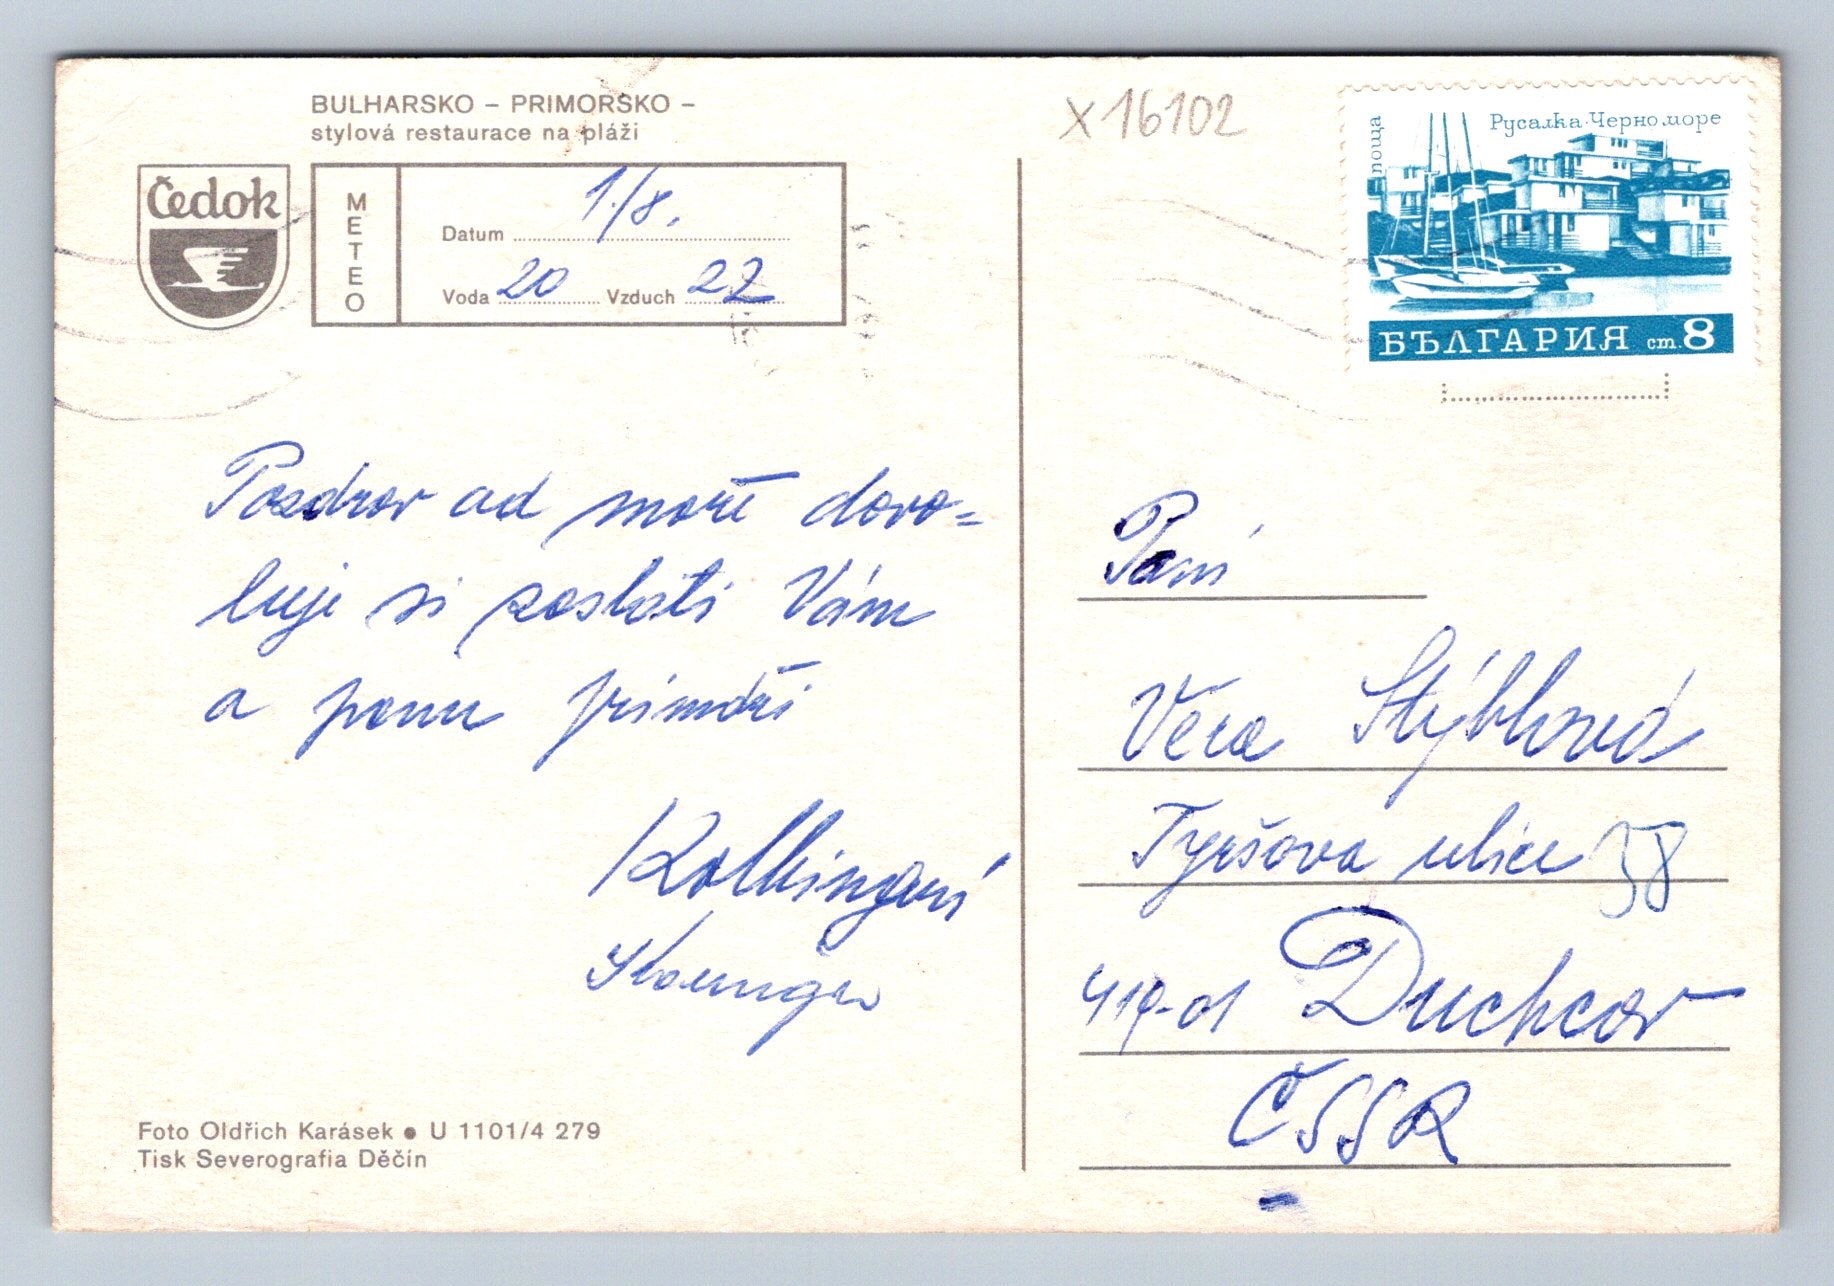 BULHARSKO – PRIMORSKO –
stylová restaurace na pláži
Čedok
METEO
Datum 1./8.
Voda 20 Vzduch 22
Pozdrav od moře dovo=
luje si zaslati Vám
a panu
X 16102
поща
Русалка·Черно море
БЪЛГАРИЯ ст. 8
Paní
Věra Stýblová
Tyršova ulice 38
419-01 Duchcov
ČSSR
Foto Oldřich Karásek ● U 1101/4 279
Tisk Severografia Děčín